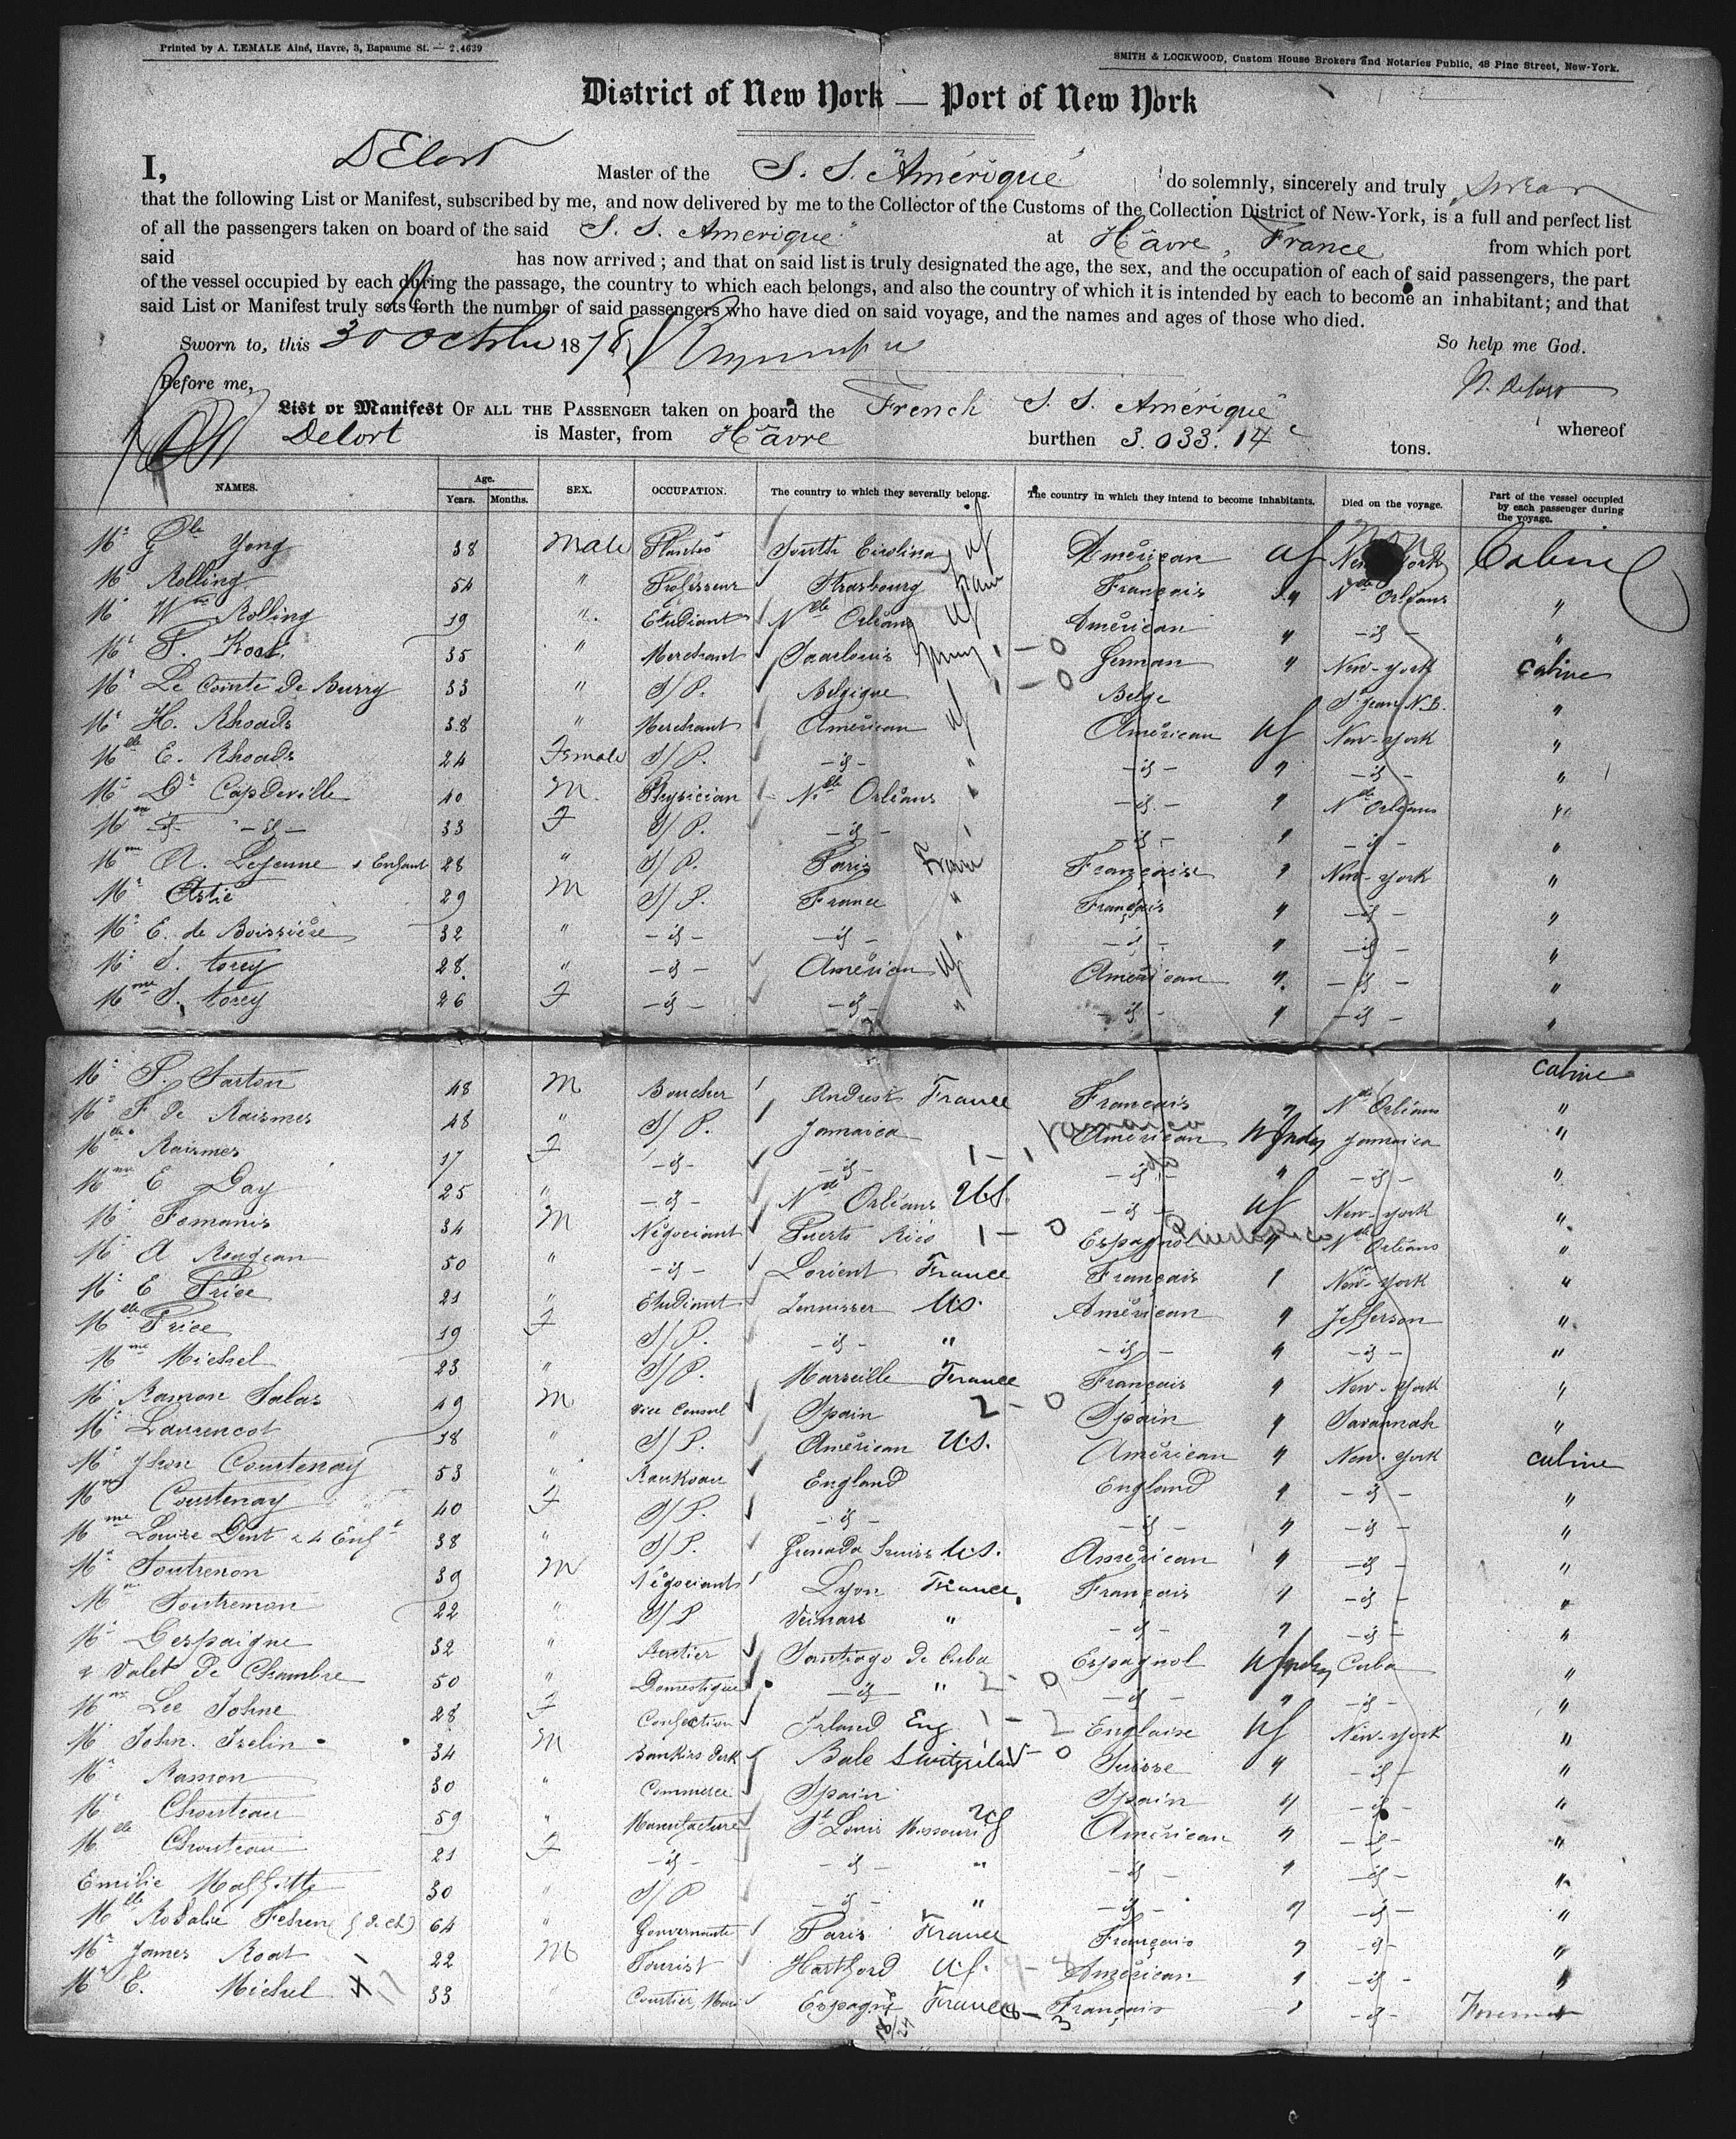 Printed by A. LEMALE Ainé, Havre, 3, Bapaume St. — 2.4639
SMITH & LOCKWOOD, Custom House Brokers and Notaries Public, 48 Pine Street, New-York.
District of New York — Port of New York
I, DElort Master of the S. S. "Amérique" do solemnly, sincerely and truly swear
that the following List or Manifest, subscribed by me, and now delivered by me to the Collector of the Customs of the Collection District of New-York, is a full and perfect list
of all the passengers taken on board of the said S. S. Amerique" at Hâvre, France from which port
said has now arrived; and that on said list is truly designated the age, the sex, and the occupation of each of said passengers, the part
of the vessel occupied by each during the passage, the country to which each belongs, and also the country of which it is intended by each to become an inhabitant; and that
said List or Manifest truly sets forth the number of said passengers who have died on said voyage, and the names and ages of those who died.
Sworn to, this 30 187 So help me God.
Before me, Delort
List or Manifest OF ALL THE PASSENGER taken on board the French S. S. Amérique" whereof
Delort is Master, from Hâvre burthen 3.033.14 tons.
NAMES. Age. Years. Months. SEX. OCCUPATION. The country to which they severally belong. The country in which they intend to become inhabitants. Died on the voyage. Part of the vessel occupied by each passenger during the voyage.
Mr Yong 38 Male South American US New York Cabine
Mr Rolling 54 " Professeur Strasbourg Français " Nlle Orléans "
Mr Wm Rolling 19 " Etudiant Nlle Orléans US Américan " -id- "
Mr 35 " Merchant Saarlouis 1-0 German " New-York Cabine
Mr Le Comte de 33 " S/P. Belgique 1-0 Belge St Jean N.B. "
Mr H. Rhoads 38 " Merchant Américan US Américan US New-York "
Mlle E. Rhoads 24 Female S/P. -id- " -id- " -id- "
Mr Dr Capdeville 40 M. Physician Nlle Orléans " -id- " Nlle Orléans "
Mme -id- 33 F S/P. -id- -id- " -id- "
Mme A. Lejeune & Enfant 28 " S/P. Paris France Française " New-York "
Mr Astié 29 M S/P. France " Français " -id- "
Mr E. de Boissière 32 " -id- -id- " -id- " -id- "
Mr S. Torey 28 " -id- Américan US Américan " -id- "
Mme S. Torey 26 F -id- -id- " -id- " -id- "
Mr P. Sarton 48 M Boucher France Français " Nlle Orléans Cabine
Mr F. de Raismes 48 " S/P. Jamaica Américan Jamaica W Indies Jamaica "
Mlle Raismes 17 F -id- -id- 1-1 -id- " -id- "
Mme E Day 25 " -id- Nlle Orléans U.S. -id- US New-York "
Mr 34 M Négociant Puerto Rico 1-0 Espagnol Puerto Rico " Nlle Orléans "
Mr A 50 " -id- Lorient France Français " New-York "
Mr E Price 21 " Etudiant U.S. Américan " Jefferson "
Mlle Price 19 F S/P. -id- " -id- " -id- "
Mme Michel 23 " S/P. Marseille France Français " New-York "
Mr Ramon Salas 49 M Vice Consul Spain 2-0 Spain " Savannah "
Mr Laurencot 18 " S/P. Américan U.S. Américan " New-York Cabine
Mr Courtenay 53 " England England " -id- "
Mme Courtenay 40 F S/P. -id- -id- " -id- "
Mme Louise Dent & 4 Enfts 38 " S/P. U.S. Américan " -id- "
Mr Soutrenon 39 M Négociant Lyon France Français " -id- "
Mme Soutrenon 22 " S/P " -id- " -id- "
Mr Despaigne 32 " Rentier Santiago de Cuba Espagnol W Indies Cuba "
& Valet de Chambre 50 " Domestique -id- " 2-0 -id- " -id- "
Mme Lee Johne 28 F Confection Irland Eng 1-2 Englaise US New-York "
Mr John. Iselin 34 M Bankers Clerk Bale Switzerland 1-0 Suisse " -id- "
Mr Ramon 30 " Commerce Spain Spain " -id- "
Mr Chouteau 59 " Manufacture St Louis Missouri US Américan " -id- "
Mlle Chouteau 21 F -id- -id- " -id- " -id- "
Emilie 30 " S/P -id- " -id- " -id- "
Mlle Rosalie 64 " Gouvernante Paris France Français " -id- "
Mr James 22 M Tourist Hartford U.S. Américan " -id- "
Mr E. Michel 33 " Courtier France Français " -id-